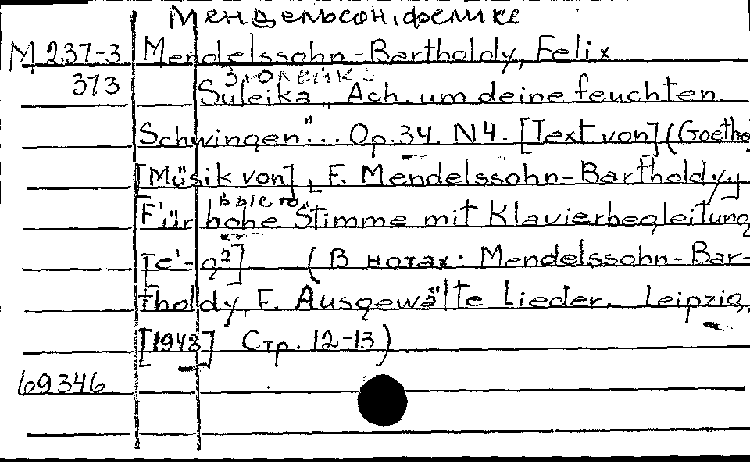 Мендельсон, феликс
М 237-3 Mendelssohn-Bartholdy, Felix
373 Suleika „Ach, um deine feuchten
Schwingen"... Op.34. N4. [Text von] (Goethe)
[Musik von] F. Mendelssohn-Bartholdy,
Für hohe Stimme mit Klavierbegleitung
[e'-g²] (В нотах: Mendelssohn-Bar-
tholdy, F. Ausgewälte Lieder. Leipzig,
[1943] Стр. 12-13)
69346